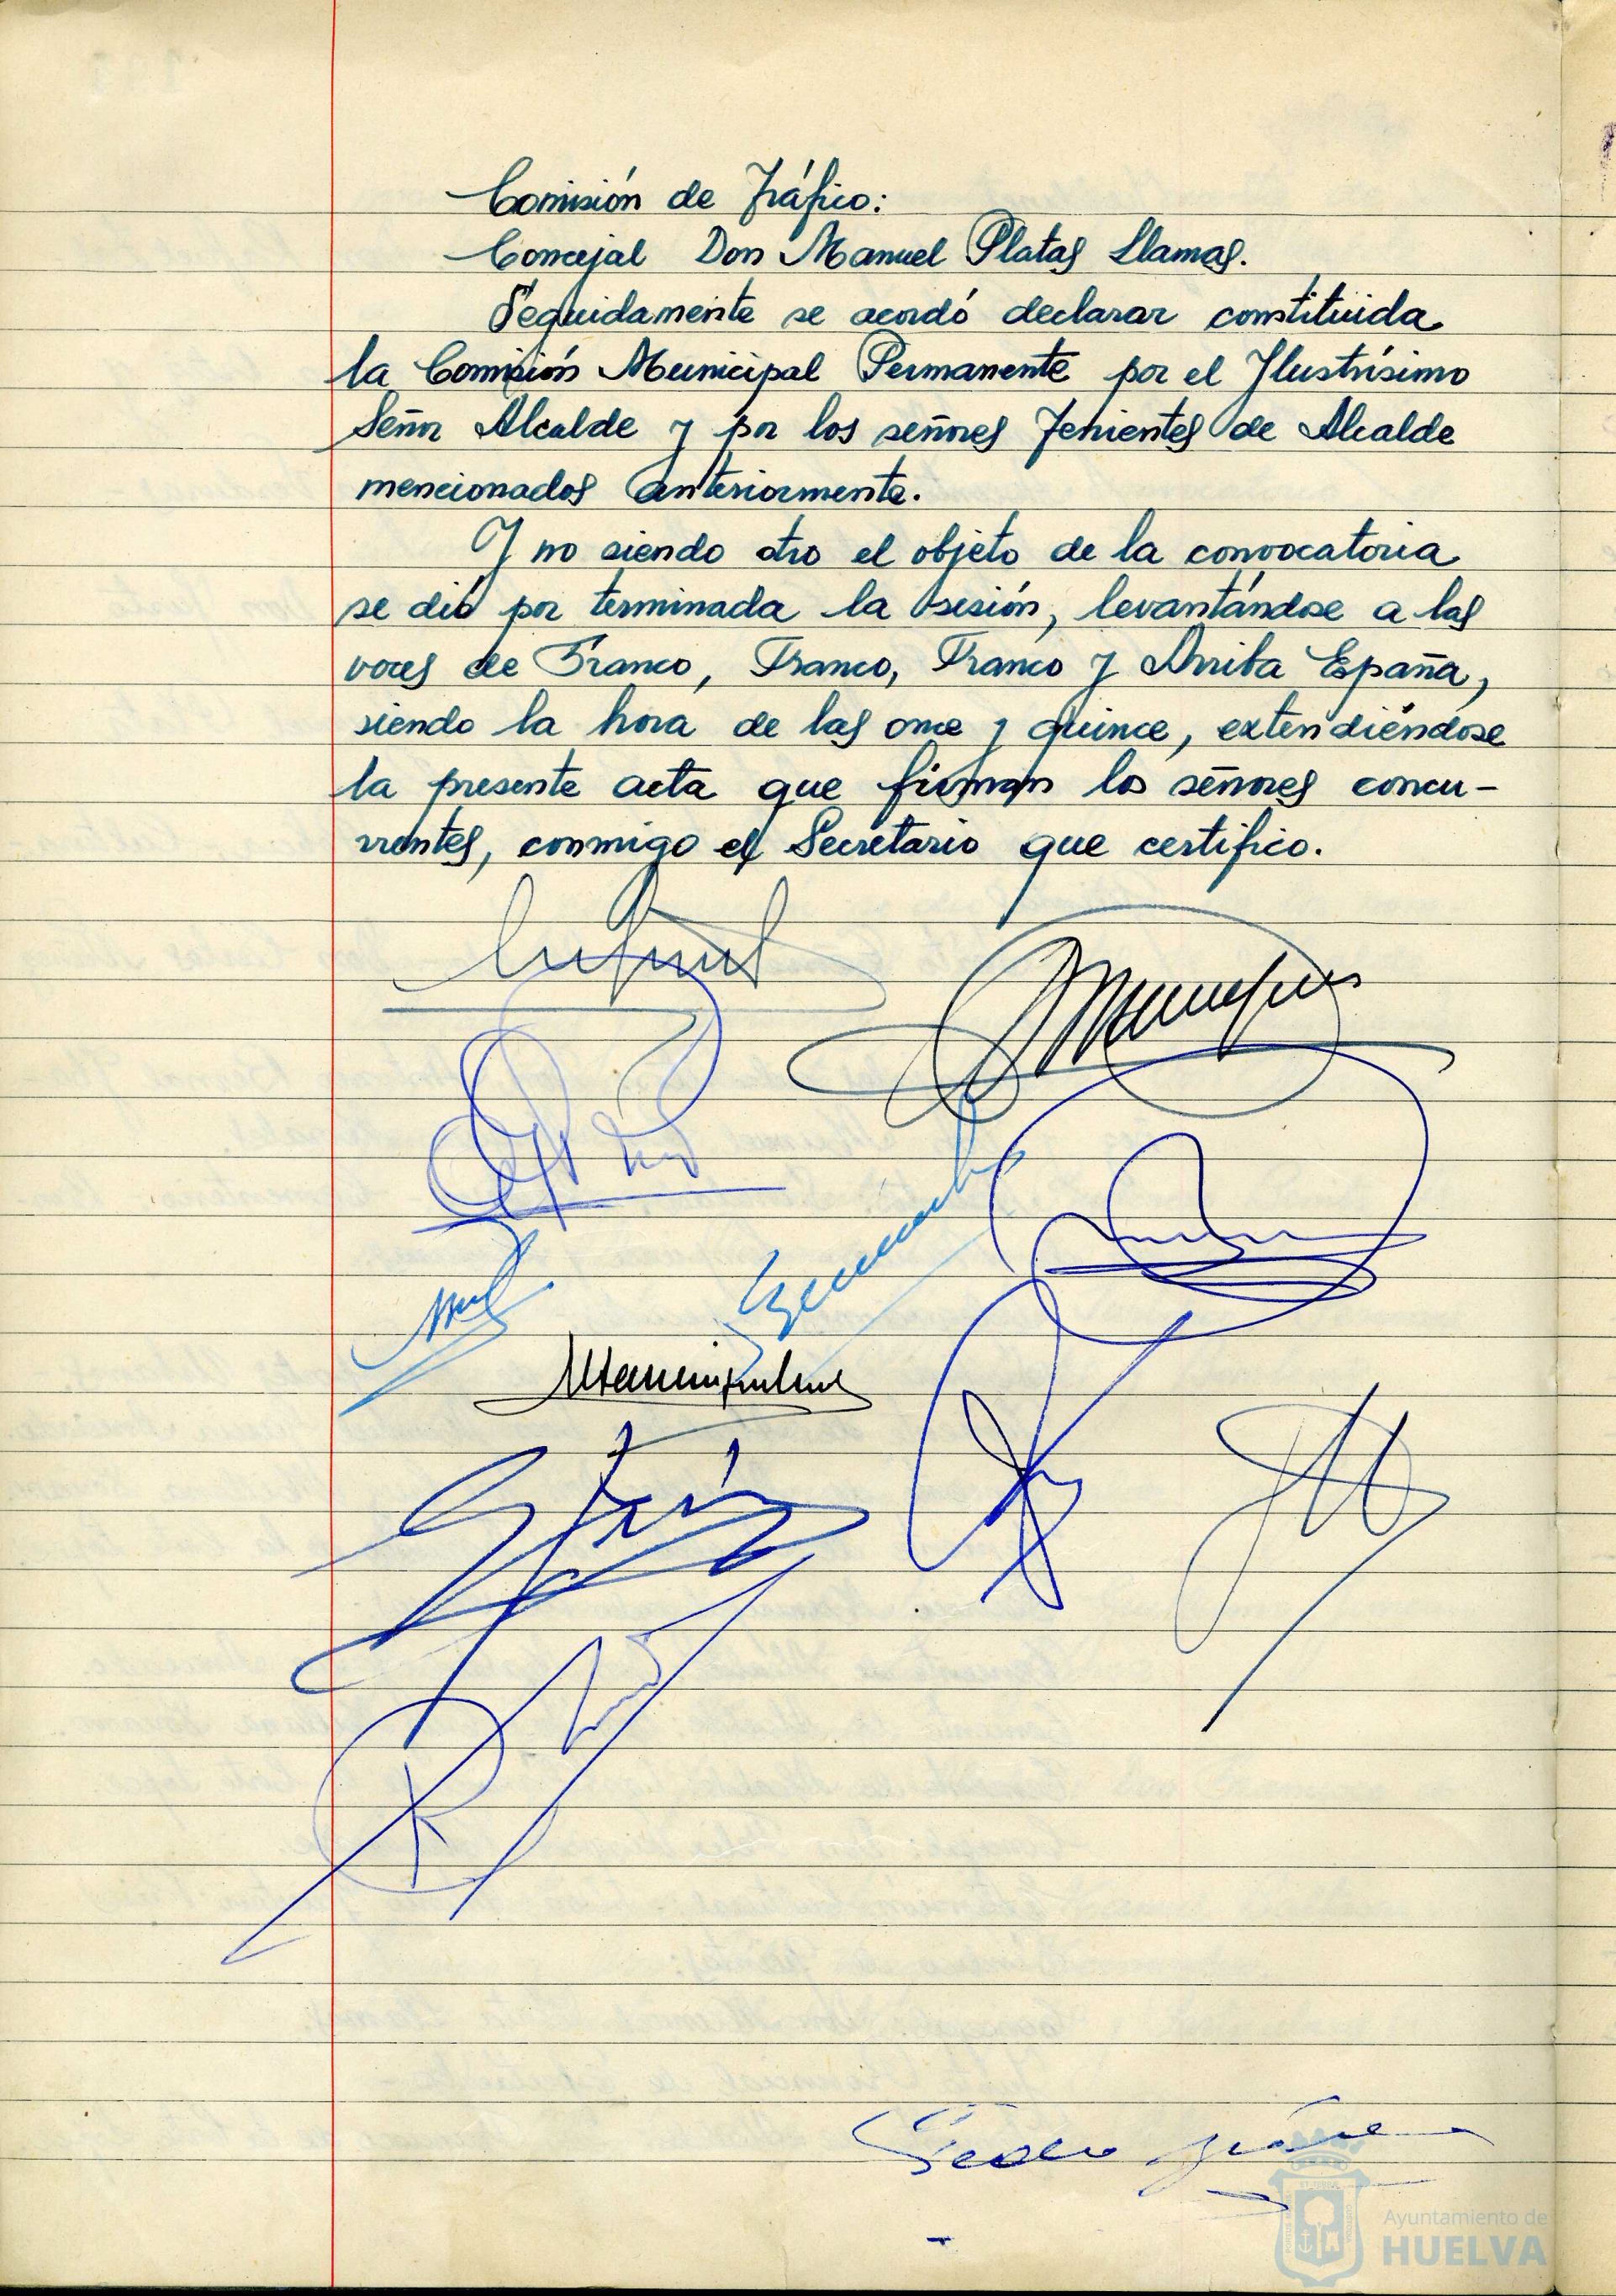 Comisión de Tráfico:
Concejal Don Manuel Platas Llamas.
Seguidamente se acordó declarar constituida
la Comisión Municipal Permanente por el Ilustrísimo
Señor Alcalde y por los señores Tenientes de Alcalde
mencionados anteriormente.
Y no siendo otro el objeto de la convocatoria
se dió por terminada la sesión, levantándose a las
voces de Franco, Franco, Franco y Arriba España,
siendo la hora de las once y quince, extendiéndose
la presente acta que firman los señores concu-
rrentes, conmigo el Secretario que certifico.
Ayuntamiento de
HUELVA